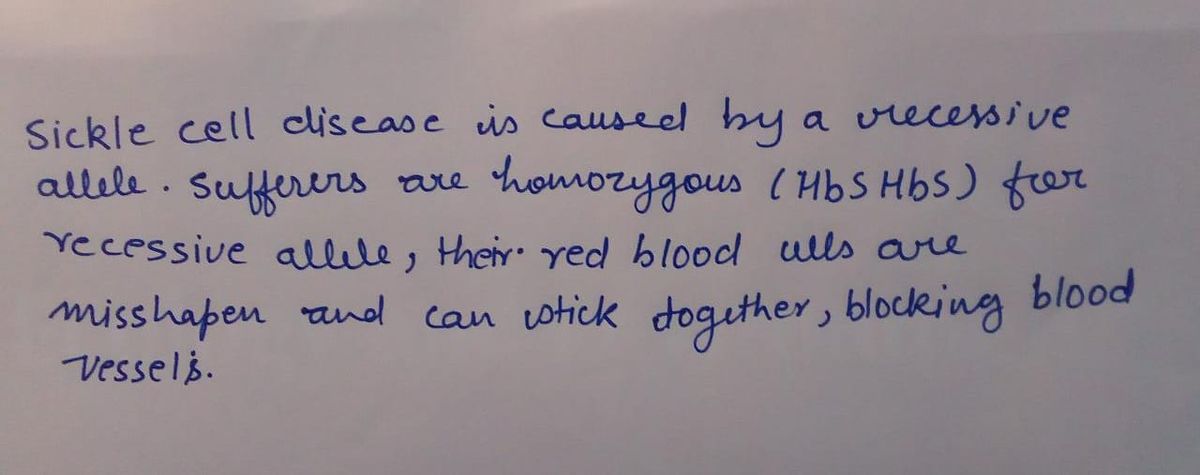 Sickle cell disease is caused by a recessive
allele. Sufferers are homozygous (HbS HbS) for
recessive allele, their red blood cells are
misshapen and can stick together, blocking blood
vessels.